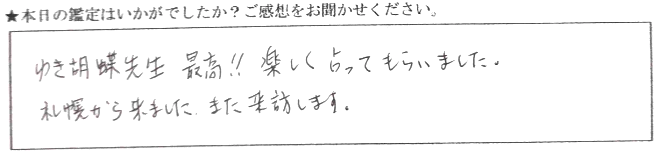 ★本日の鑑定はいかがでしたか？ご感想をお聞かせください。
ゆき胡蝶先生 最高!! 楽しく占ってもらいました。
札幌から来ました、また来訪します。